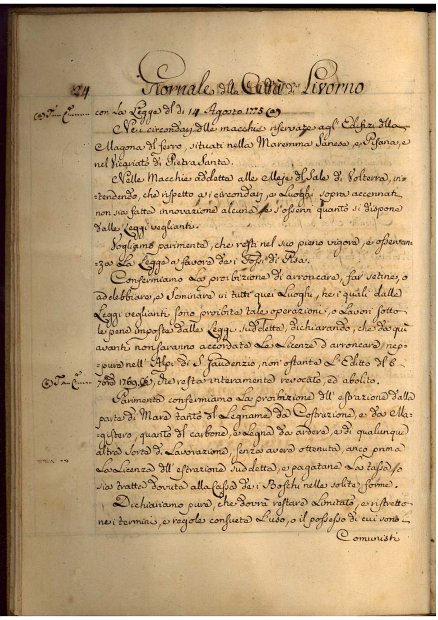 24 Giornale della Città di Livorno
con La Legge dl di 14 Agosto 1775 (a)
Nei circondarj dlle macchie riservate agl' Edifizi dlla
Magona dl ferro, situati nella Maremma Sanese, e Pisana, e
nel Vicariato di Pietra Santa.
Nelle Macchie addette alle Moje dl Sale di Volterra, in-
tendendo, che rispetto a i circondarj, e Luoghi sopra accennati
non sia fatta innovazione alcuna, e s'osservi quanto si dispone
dalle Leggi veglianti.
Vogliamo parimente, che resti nel suo pieno vigore, e osservan-
za La Legge a favore de i Fossi di Pisa.
Confermiamo La proibizione di arroncare, far cetine, o
addebbiare, e Seminare in tutti quei Luoghi, ne i quali dalle
Leggi veglianti sono proibite tale operazioni, o Lavori sotto
le pene imposte dalle Leggi suddette, dichiarando, che da qui
avanti non saranno accordate Le Licenze d'arroncare, nep-
pure nell' Alpi di S. Gaudenzio, non ostante L'Editto dl
1769, che resta interamente revocato, ed abolito.
Parimente confermiamo La proibizione dll' estrazione dalla
parte di Mare tanto dl Legname da Costruzione, e da Ma-
gistero, quanto dl carbone, e Legna da ardere, e di qualunque
altra sorte di Lavorazione, senz'avere ottenuta, anco prima
La Licenza dll' estrazione suddetta, e pagatane La tassa, o
sia tratta dovuta alla Cassa de i Boschi nelle solite forme.
Dichiariamo pure, che dovrà restare Limitato, e ristretto
ne i termini, e regole consuete L'uso, o il possesso di cui sono
Comunisti